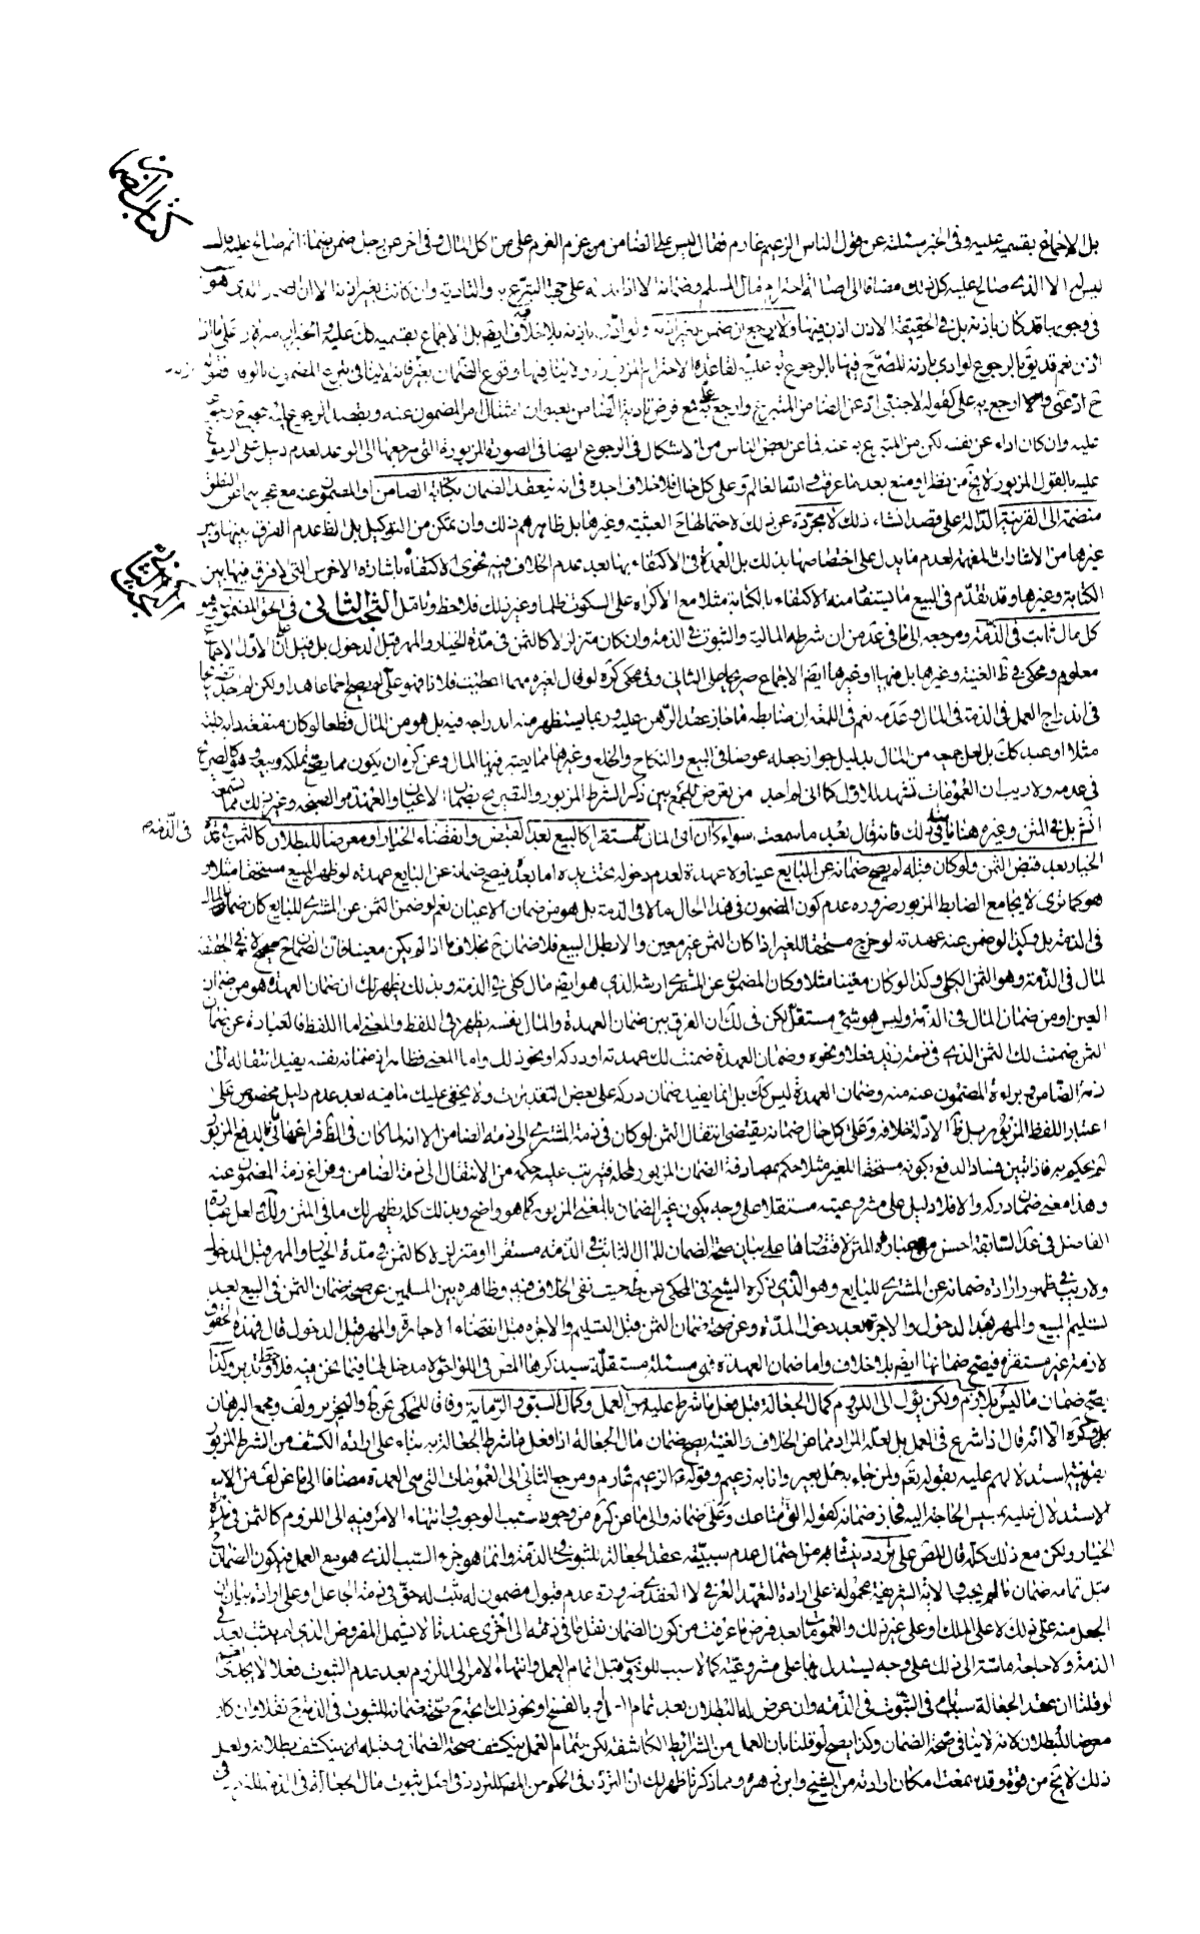 كتاب الضمان
بل الاجماع بقسميه عليه وفى الخبر سئلته عن قول الناس الزعيم غارم فقال ليس على الضامن من غرم الغرم على من اكل المال وفى اخر عن رجل ضمن ضمانا ثم صالح عليه قال
ليس له الا الذى صالح عليه كل ذلك مضافا الى اصالة احترام مال المسلم وضمانه الا اذا على جهة التبرع به والتادية وان كانت بغير اذن الا ان هو
فى وجوبها قد كان باذنه بل فى الحقيقة الاذن اذن فيها ولا يرجع ان ضمن بغير اذنه ولو ادى باذنه بلا خلاف ايضا بل الاجماع بقسميه عليه
اذن نعم قد يق بالرجوع لو ادى باذنه المصرح فيها بالرجوع به عليه لقاعدة الاحترام ولا ينافيها وقوع الضمان بغير
ح اد عنى وارجع به على كقوله لاجنبى اد عن الضامن المتبرع وارجع به على مع فرض تادية الضامن بعنوان امتثال امر المضمون عنه وبقصد الرجوع عليه
عليه وان كان اداء عن نفسه لكن من المتبرع به عنه فما عن بعض الناس من الاشكال فى الرجوع ايضا فى الصورة المزبورة التى مرجعها الى الوعد لعدم دليل على الرجوع
عليه بالقول المزبور لا يخ من نظر او منع بعد ما عرفت والله العالم وعلى كل حال فلا خلاف اجده فى انه ينعقد الضمان بكتابة الضامن والمضمون عنه مع عجزهما عن النطق
منضمة الى القرينة الدالة على قصد انشاء ذلك لا مجردة عن ذلك لاحتمالها ح العبثية وغيرها بل ظاهرهم ذلك وان تمكن من التوكيل بل الظ عدم الفرق بينها وبين
غيرها من الاشارات المفهمة لعدم ما يدل على اختصاصها بذلك بل العمدة فى الاكتفاء بها بعد عدم الخلاف فيه فحوى الاكتفاء باشارة الاخرس التى لا فرق فيها بين
البحث الثانى
الكتابة وغيرها وقد تقدم فى البيع ما يستفاد منه الاكتفاء بالكتابة مثلا مع الاكراه على السكوت ظلما وغير ذلك فلاحظ وتامل البحث الثانى فى الحق المضمون وهو
كل مال ثابت فى الذمة ومرجعه الى ما فى عد من ان شرطه المالية والثبوت فى الذمة وان كان متزلزلا كالثمن فى مدة الخيار والمهر قبل الدخول بل قيل ان على الاول الاجماع
معلوم ومحكى فى ظ الغنية وغيرها بل فيها او غيرها ايضا الاجماع صريحا على الثانى وفى محكى كره لو قال لغيره مهما اعطيت فلانا فهو على لم يصح اجماعا هذا ولكن لم اجد
فى اندراج العمل فى الذمة فى المال وعدمه نعم فى اللمعة ان ضابطه ما جاز عقد الرهن عليه وربما يستظهر منه اندراجه فيه بل هو من المال قطعا لو كان منفعة دابة
مثلا او عبد كك بل لعل جميعه من المال بدليل جواز جعله عوضا فى البيع والنكاح والخلع وغيرها مما يعتبر فيها المال وعن كره ان يكون مما يصح تملكه وبيعه وهو كالصريح
فى عدمه ولا ريب ان العمومات تشهد للاول كما انى لم اجد من تعرض للجمع بين ذكر الشرط المزبور والتصريح بضمان الاعيان والعهدة وغير ذلك مما تسمعه
انش بل فى المتن وغيره هنا ما ينافى ذلك فانه قال بعد ما سمعت سواء كان اى المال مستقرا كالبيع بعد القبض وانقضاء الخيار او معرضا للبطلان كالثمن فى مدة
فى الذمة
الخيار بعد قبض الثمن ولو كان قبله لم يصح ضمانه عن البايع عينا ولا عهدة لعدم دخوله تحت يده اما بعده فيصح ضمانه عن البايع عهدته لو ظهر المبيع مستحقا مثلا و
هو كما ترى لا يجامع الضابط المزبور ضرورة عدم كون المضمون فى هذا الحال مالا فى الذمة بل هو من ضمان الاعيان نعم لو ضمن الثمن عن المشترى للبايع كان ضمانا لمال
فى الذمة بل وكذا لو ضمن عنه عهدته لو خرج مستحقا للغير اذا كان الثمن غير معين والا بطل البيع فلا ضمان ح بخلاف ما اذا لم يكن معينا فان الضمان ح صحيح لانه فى الحقيقة
لمال فى الذمة وهو الثمن الكلى وكذا لو كان معينا مثلا وكان المضمون عن المشترى ارشه الذى هو ايضا مال كلى فى الذمة وبذلك يظهر لك ان ضمان العهدة هو من ضمان
العين او من ضمان المال فى الذمة وليس هو شئ مستقل لكن فى لك ان الفرق بين ضمان العهدة والمال نفسه يظهر فى اللفظ والمعنى اما اللفظ فالعبارة عن ضمان
الثمن ضمنت لك الثمن الذى فى ذمة زيد فعلا ونحوه وضمان العهدة ضمنت لك عهدته او دركه او نحو ذلك واما المعنى فظاهر اذ ضمانه نفسه يفيد انتقاله الى
ذمة الضامن وبراءة المضمون عنه منه وضمان العهدة ليس كك بل انما يفيد ضمان دركه على بعض التقديرات ولا يخفى عليك ما فيه بعد عدم دليل مخصوص على
اعتبار اللفظ المزبور بل ظ الادلة خلافه وعلى كل حال ضمانه يقتضى انتقال الثمن لو كان فى ذمة المشترى الى ذمة الضامن الا انه لما كان فى الظ فراغها بالدفع المزبور
لم يحكم به فاذا تبين فساد الدفع بكونه مستحقا للغير مثلا حكم بمصادفة الضمان المزبور لمحله فيترتب عليه حكمه من الانتقال الى ذمة الضامن وفراغ ذمة المضمون عنه
وهذا معنى ضمان دركه والا فلا دليل على مشروعيته مستقلا على وجه يكون غير الضمان بالمعنى المزبور كما هو واضح وبذلك كله يظهر لك ما فى المتن ولك ولعل عبارة
الفاضل فى عد السابقة احسن من عبارة المتن لاقتصارها على بيان صحة الضمان للمال الثابت فى الذمة مستقرا او متزلزلا كالثمن فى مدة الخيار والمهر قبل الدخول
ولا ريب فى ظهور ارادة ضمانه عن المشترى للبايع وهو الذى ذكره الشيخ فى المحكى عن ط حيث نفى الخلاف فيه وظاهره بين المسلمين عن صحة ضمان الثمن فى البيع بعد
تسليم المبيع والمهر بعد الدخول والاجرة بعد دخول المدة وعن صحة ضمان الثمن قبل التسليم والاجرة قبل انقضاء الاجارة والمهر قبل الدخول قال فهذه الحقوق
لازمة غير مستقرة فيصح ضمانها ايضا بلا خلاف واما ضمان العهدة فهى مسئلة مستقلة سيذكرها المص فى اللواحق لا مدخل لها فيما نحن فيه فلاحظ وتدبر وكذا
يصح ضمان ما ليس بلازم ولكن يؤل الى اللزوم كمال الجعالة قبل فعل ما شرط عليه من العمل وكمال السبق والرماية وفاقا للمحكى عن ط والتحرير ولف ومجمع البرهان
بل وكره الا انه قال اذا شرع فى العمل بل لعله المراد مما عن الخلاف والغنية يصح ضمان مال الجعالة اذا فعل ما شرط الجعالة به بناء على ارادة الكشف من الشرط المزبور
بقرينة استدلالهم عليه بقوله تع ولمن جاء به حمل بعير وانا به زعيم وقوله ص الزعيم غارم ومرجع الثانى الى العمومات التى هى العمدة مضافا الى ما عن لف من الاية
لاستدلال عليه بمسيس الحاجة اليه فجاز ضمانه كقوله الق متاعك وعلى ضمانه والى ما عن كره من وجود سبب الوجوب وانتهاء الامر فيه الى اللزوم كالثمن فى مدة
الخيار ولكن مع ذلك كله قال المص على تردد ينشا من احتمال عدم سببية عقد الجعالة للثبوت فى الذمة وانما هو جزء السبب الذى هو مع العمل فيكون الضمان
قبل تمامه ضمان ما لم يجب والاية الشريفة محمولة على ارادة التعهد العرفى لا العقدى ضرورة عدم قبول مضمون له يثبت له حق فى ذمة الجاعل او على ارادة بيان ان
الجعل منه على ذلك لا على الملك او على غير ذلك والعمومات بعد فرض ما عرفت من كون الضمان نقل ما فى ذمة الى اخرى عندنا لا تشمل المفروض الذى لم يثبت بعد فى
الذمة ولا حاجة ماسة الى ذلك على وجه يستدل بها على مشروعيته كما لا سبب للوجوب قبل تمام العمل وانتهاء الامر الى اللزوم بعد عدم الثبوت فعلا لا يجدى نعم
لو قلنا ان عقد الجعالة سبب تام فى الثبوت فى الذمة وان عرض له البطلان بعد تمام او بالفسخ او نحو ذلك اتجه ح صحة ضمانه للثبوت فى الذمة ح نقلا وان كان
معرضا للبطلان لانه لا ينافى صحة الضمان وكذا يصح لو قلنا بان العمل من الشرائط الكاشفة لكن بتمام العمل ينكشف صحة الضمان وقبله لم ينكشف بطلانه ولعل
ذلك لا يخ من قوة وقد سمعت امكان ارادته من الشيخ وابن زهرة وبما ذكرنا ظهر لك ان التردد فى الحكم من المص للتردد فى اصل ثبوت مال الجعالة فى الذمة فى